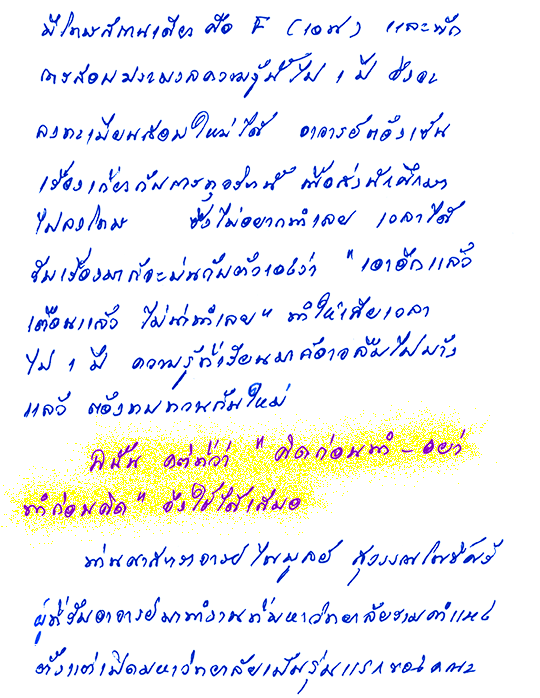 มีโทษสถานเดียว คือ F (เอฟ) และพัก
การสอบประมวลความรู้นี้ไป 1 ปี จึงจะ
ลงทะเบียนสอบใหม่ได้ อาจารย์ต้องเซ็น
เรื่องเกี่ยวกับการทุจริตนี้ เพื่อส่งนักศึกษา
ไปลงโทษ ซึ่งไม่อยากทำเลย เวลาได้
รับเรื่องมาก็จะบ่นกับตัวเองว่า "เอาอีกแล้ว
เตือนแล้ว ไม่น่าทำเลย" ทำให้เสียเวลา
ไป 1 ปี ความรู้ที่เรียนมาก็อาจลืมไปบ้าง
แล้ว ต้องทบทวนกันใหม่
ดังนั้น คติที่ว่า "คิดก่อนทำ - อย่า
ทำก่อนคิด" จึงใช้ได้เสมอ
ท่านศาสตราจารย์ไพฑูรย์
ผู้ที่รับอาจารย์มาทำงานที่มหาวิทยาลัยรามคำแหง
ตั้งแต่เปิดมหาวิทยาลัยเป็นรุ่นแรกของคณะ